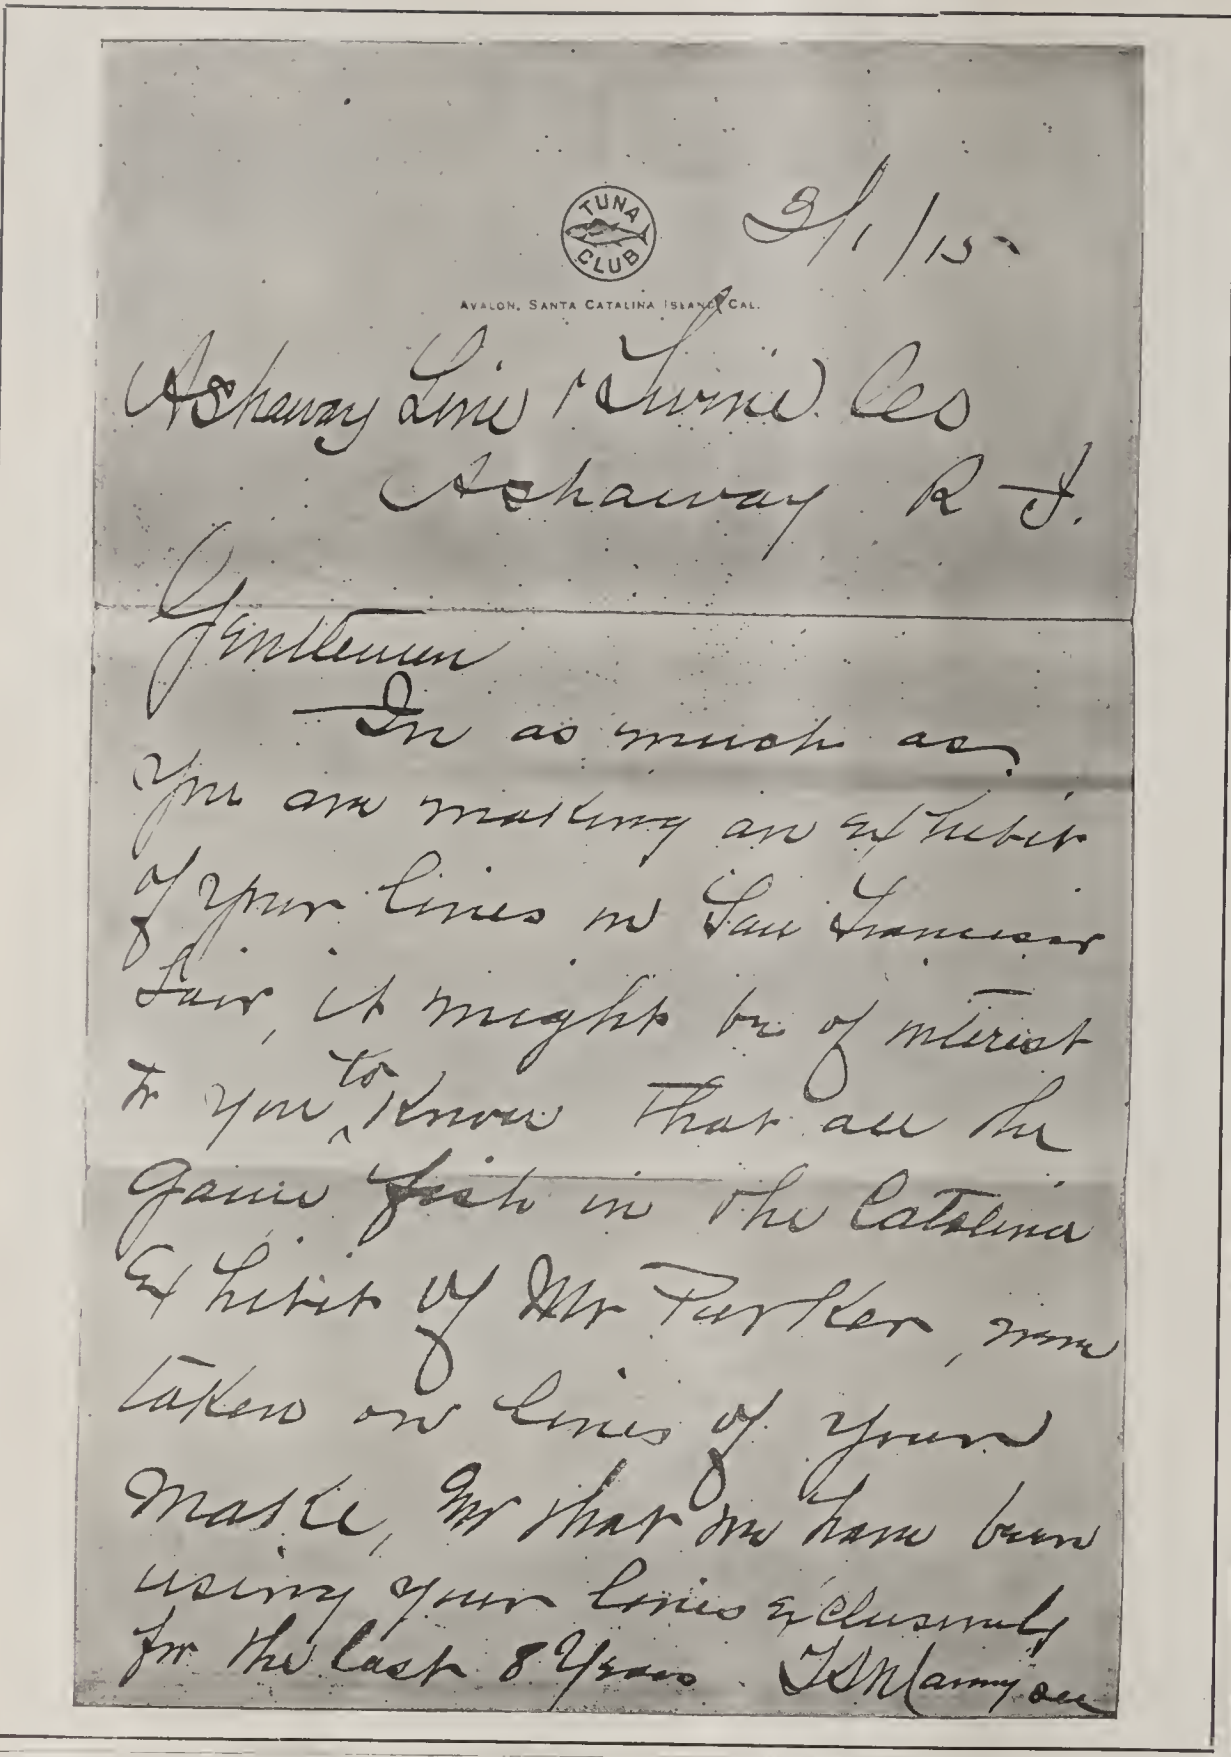 TUNA
CLUB
AVALON, SANTA CATALINA ISLAND, CAL.
2/1/15
Ashaway Line & Twine Co
Ashaway R I.
Gentlemen
In as much as
you are making an exhibit
of your lines in San Francisco
Fair, it might be of interest
to you to know that all the
game fish in the Catalina
Exhibit of Mr Parker, were
taken on lines of your
make, that we have been
using your lines exclusively
for the last 8 years